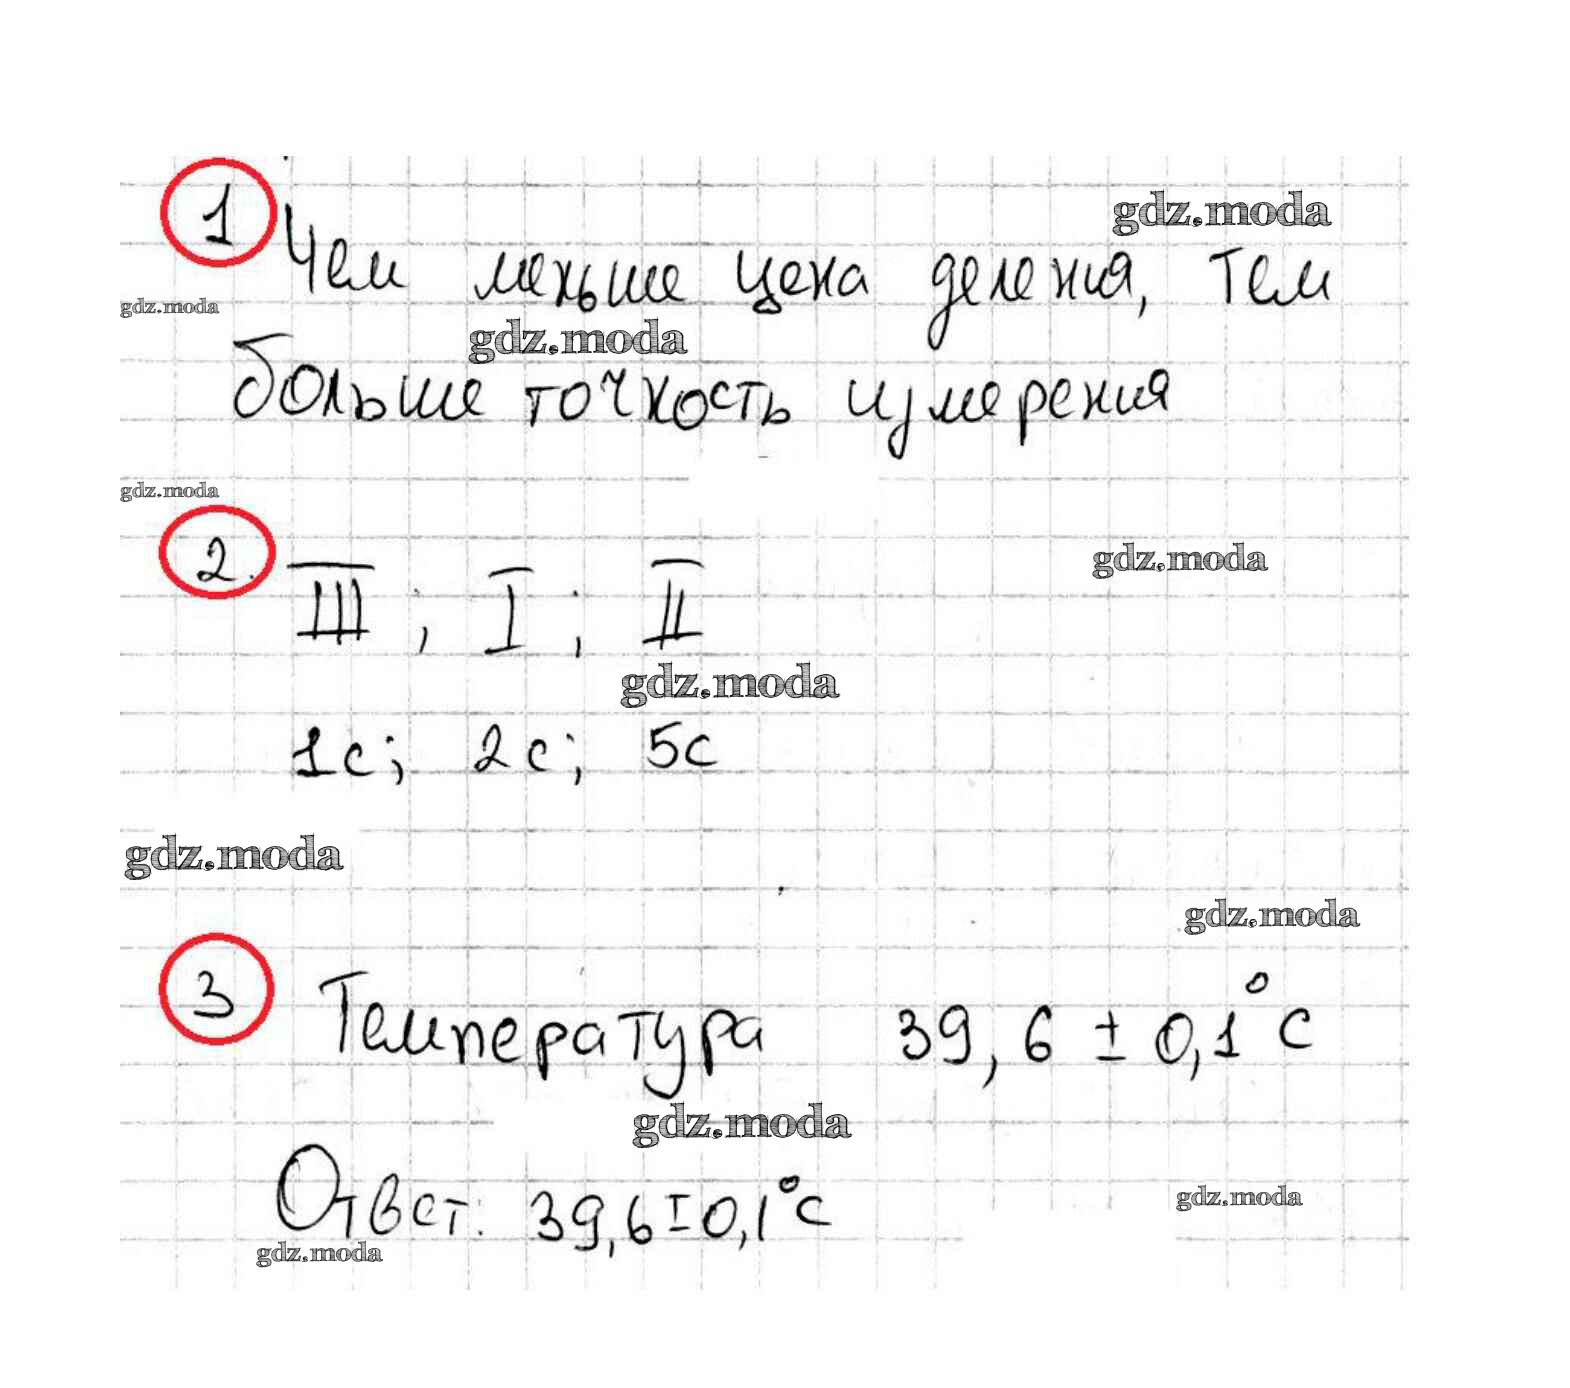 1 Чем меньше цена деления, тем
gdz.moda
gdz.moda
gdz.moda
больше точность измерения
gdz.moda
2. III ; I ; II
gdz.moda
gdz.moda
1с; 2с; 5с
gdz.moda
gdz.moda
3 Температура 39,6 ± 0,1°С
gdz.moda
Ответ: 39,6±0,1°С
gdz.moda
gdz.moda